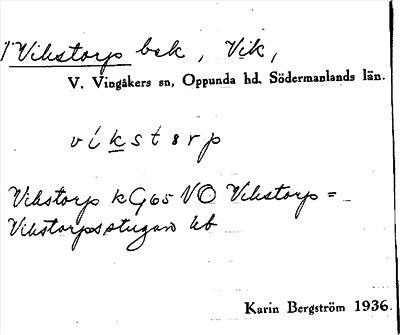 1 Vikstorp bek, Vik,
V. Vingåkers sn, Oppunda hd. Södermanlands län.
víkstorp
Vikstorp kG65 VO Vikstorp =
Vikstorpsstugan hb
Karin Bergström 1936.